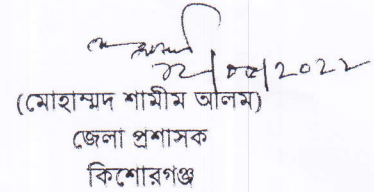 ১২/০৫/২০২২
(মোহাম্মদ শামীম আলম)
জেলা প্রশাসক
কিশোরগঞ্জ